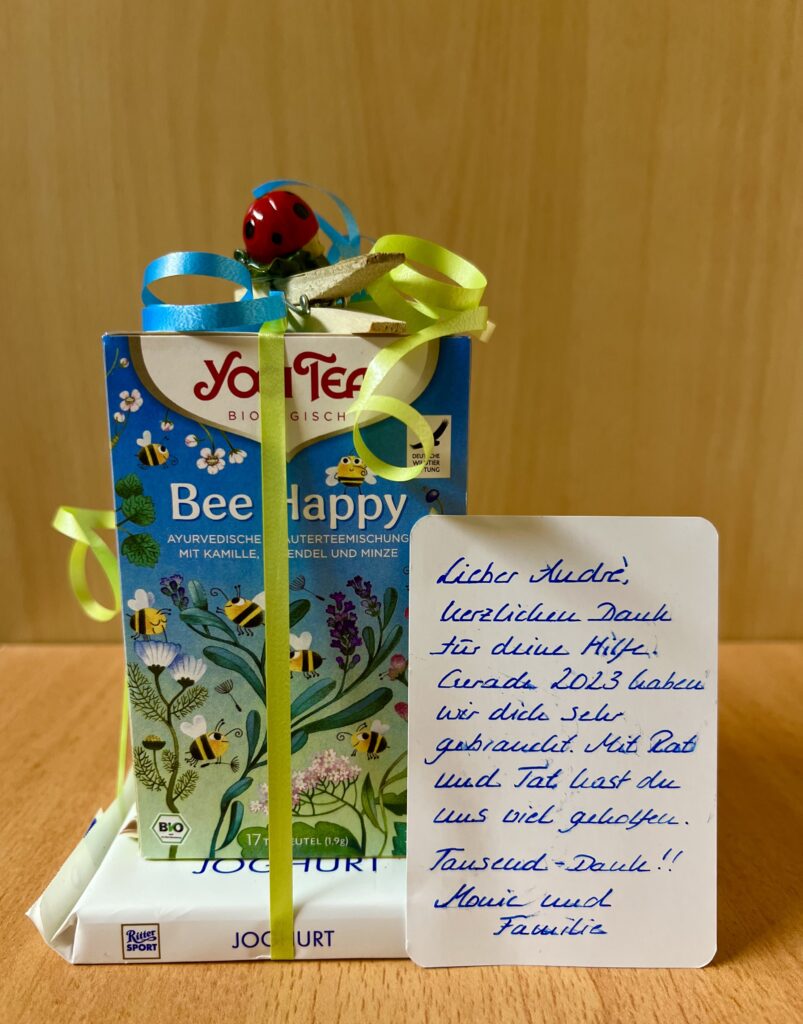 YOGI TEA
BIOLOGISCH
DEUTSCHE
WILDTIER
STIFTUNG
Bee Happy
AYURVEDISCHE KRÄUTERTEEMISCHUNG
MIT KAMILLE, LAVENDEL UND MINZE
BIO
17 TEEBEUTEL (1.9g)
JOGHURT
Ritter
SPORT
JOGHURT
Lieber André,
herzlichen Dank
für deine Hilfe.
Gerade 2023 haben
wir dich sehr
gebraucht. Mit Rat
und Tat hast du
uns viel geholfen.
Tausend-Dank!!
Monic und
Familie